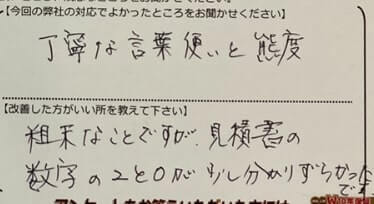 【今回の弊社の対応でよかったところをお聞かせください】
丁寧な言葉使いと態度
【改善した方がいい所を教えて下さい】
粗末なことですが、見積書の
数字の2と0が少し分かりずらかった
です